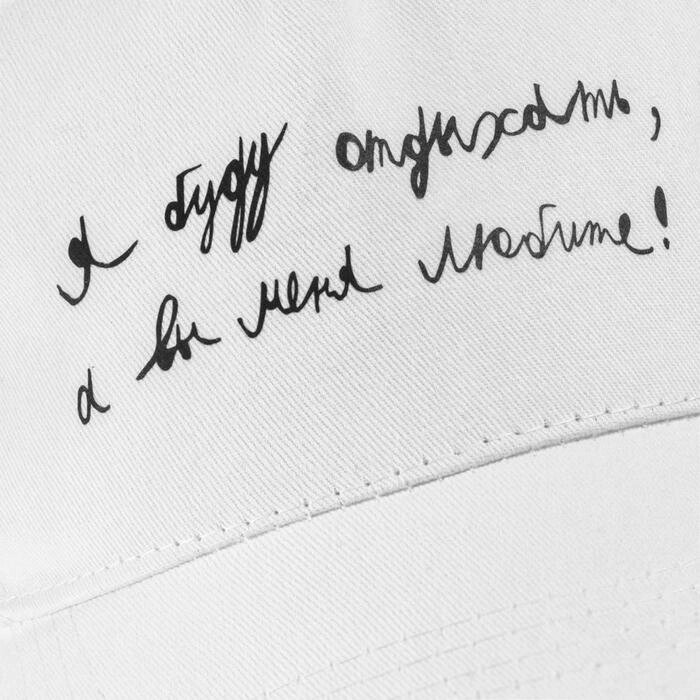 Я буду отдыхать,
а вы меня любите!